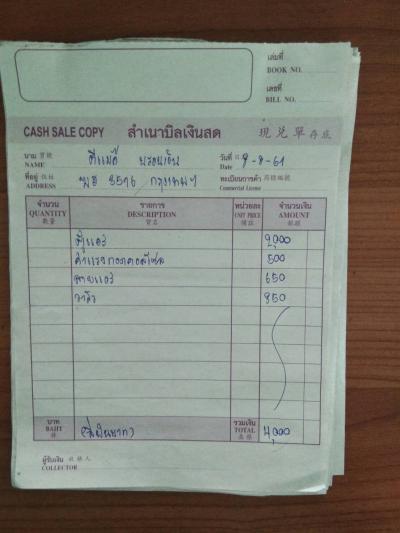 เล่มที่
BOOK NO.
เลขที่
BILL NO.
CASH SALE COPY สำเนาบิลเงินสด 現兌單存底
นาม 寶號
NAME
วันที่ 日期 -8-61
Date
ที่อยู่ 住址 8596 กรุงเทพฯ
ADDRESS
ทะเบียนการค้า 商標編號
Commercial License
จำนวน รายการ หน่วยละ จำนวนเงิน
QUANTITY DESCRIPTION UNIT PRICE AMOUNT
數量 貨名 價註 銀額
ตู้แอร์ 2,000
ค่าแรงถอดคอนโซล 500
สายแอร์ 650
วาล์ว 850
บาท รวมเงิน
BAHT (สี่พันบาท) TOTAL 4,000
銖
ผู้รับเงิน 收銀人
COLLECTOR